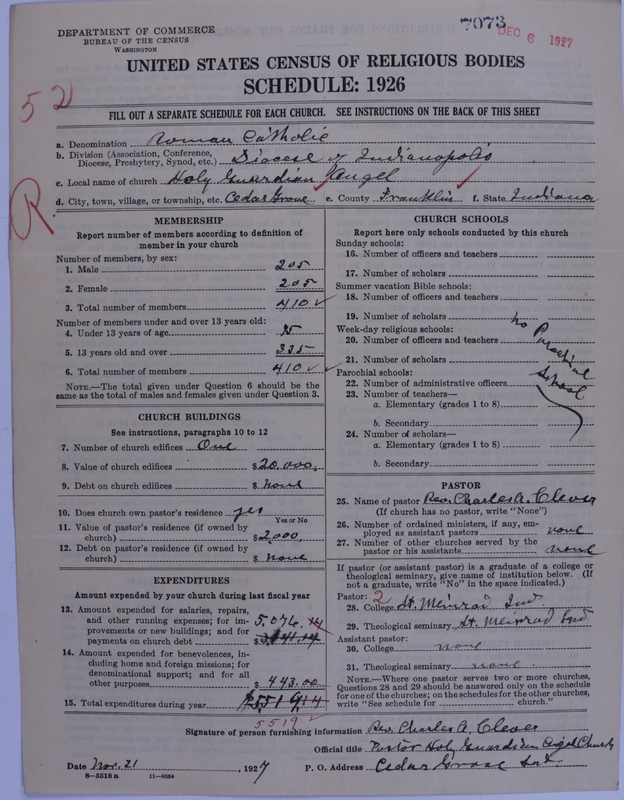 7073
DEC 6 1927
DEPARTMENT OF COMMERCE
BUREAU OF THE CENSUS
WASHINGTON
UNITED STATES CENSUS OF RELIGIOUS BODIES
SCHEDULE: 1926
52
FILL OUT A SEPARATE SCHEDULE FOR EACH CHURCH. SEE INSTRUCTIONS ON THE BACK OF THIS SHEET
a. Denomination Roman Catholic
b. Division (Association, Conference, Diocese, Presbytery, Synod, etc.) Diocese of Indianapolis
c. Local name of church Holy Guardian Angel
d. City, town, village, or township, etc. Cedar Grove e. County Franklin f. State Indiana
R.
MEMBERSHIP
Report number of members according to definition of
member in your church
Number of members, by sex:
1. Male 205
2. Female 205
3. Total number of members 410
Number of members under and over 13 years old:
4. Under 13 years of age 75
5. 13 years old and over 335
6. Total number of members 410
NOTE.—The total given under Question 6 should be the
same as the total of males and females given under Question 3.
CHURCH BUILDINGS
See instructions, paragraphs 10 to 12
7. Number of church edifices One
8. Value of church edifices $20,000.
9. Debt on church edifices $ none
10. Does church own pastor's residence? yes
Yes or No
11. Value of pastor's residence (if owned by
church) $2,000.
12. Debt on pastor's residence (if owned by
church) $ none
EXPENDITURES
Amount expended by your church during last fiscal year
13. Amount expended for salaries, repairs,
and other running expenses; for im-
provements or new buildings; and for
payments on church debt $ 5,076.14
14. Amount expended for benevolences, in-
cluding home and foreign missions; for
denominational support; and for all
other purposes $ 443.00
15. Total expenditures during year
5519
CHURCH SCHOOLS
Report here only schools conducted by this church
Sunday schools:
16. Number of officers and teachers
17. Number of scholars
Summer vacation Bible schools:
18. Number of officers and teachers
19. Number of scholars
Week-day religious schools:
20. Number of officers and teachers
21. Number of scholars
Parochial schools:
22. Number of administrative officers
23. Number of teachers—
a. Elementary (grades 1 to 8)
b. Secondary
24. Number of scholars—
a. Elementary (grades 1 to 8)
b. Secondary
no Parochial School
PASTOR
25. Name of pastor Rev. Charles A. Clever
(If church has no pastor, write "None")
26. Number of ordained ministers, if any, em-
ployed as assistant pastors none
27. Number of other churches served by the
pastor or his assistants none
If pastor (or assistant pastor) is a graduate of a college or
theological seminary, give name of institution below. (If
not a graduate, write "No" in the space indicated.)
Pastor: 2
28. College St. Meinrad Ind.
29. Theological seminary St. Meinrad Ind
Assistant pastor:
30. College none
31. Theological seminary none
NOTE.—Where one pastor serves two or more churches,
Questions 28 and 29 should be answered only on the schedule
for one of the churches; on the schedules for the other churches,
write "See schedule for church."
Signature of person furnishing information Rev. Charles A. Clever
Official title Pastor Holy Guardian Angel Church
Date Nov. 21, 1927 P. O. Address Cedar Grove Ind.
8—5518 a 11—9034